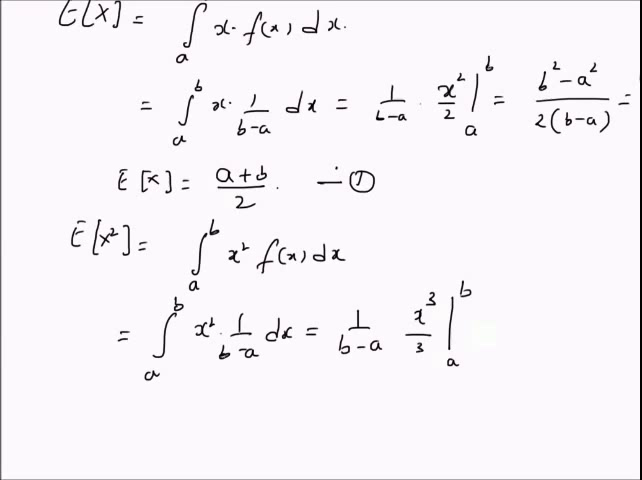 E[X] = ∫ₐ x. f(x) dx.
= ∫ₐᵇ x. 1/(b-a) dx = 1/(b-a) . x²/2 |ₐᵇ = (b²-a²)/(2(b-a)) =
E[x] = (a+b)/2 . — ①
E[x²] = ∫ₐᵇ x² f(x) dx
= ∫ₐᵇ x². 1/(b-a) dx = 1/(b-a) x³/3 |ₐᵇ